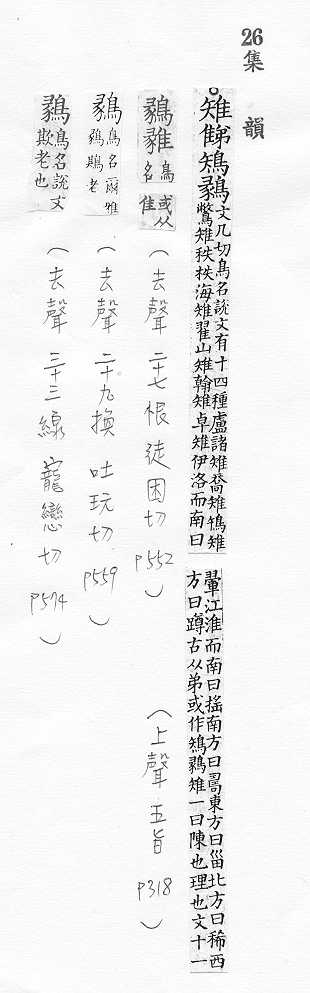 26 集韻
雉𨾗鴙鶨
文几切鳥名說文有十四種盧諸雉喬雉鳪雉
鷩雉秩秩海雉翟山雉翰雉卓雉伊洛而南曰
翬江淮而南曰搖南方曰𠷎東方曰甾北方曰稀西
方曰蹲古从弟或作鴙鶨雉一曰陳也理也文十一
(上聲 五旨 p318)
鶨䧴 鳥名或从隹 (去聲 二十七恨 徒困切 p552)
鶨 鳥名爾雅鶨鶀老 (去聲 二十九換 吐玩切 p559)
鶨 鳥名說文欺老也 (去聲 三十三線 寵戀切 p574)